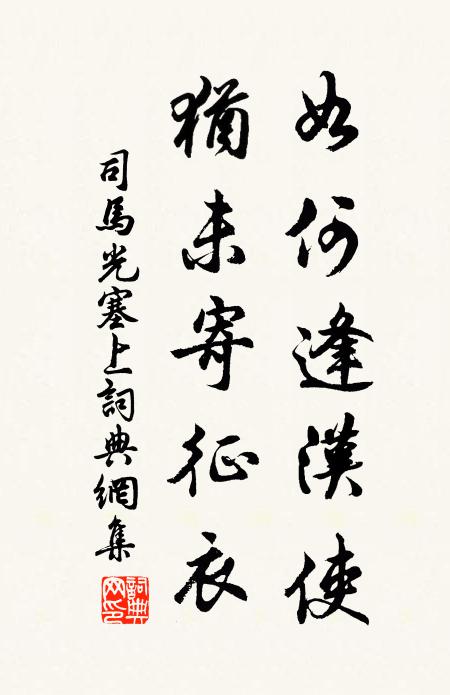 如何逢漢使
猶未寄征衣
司馬光塞上詞典網集
詞典網印